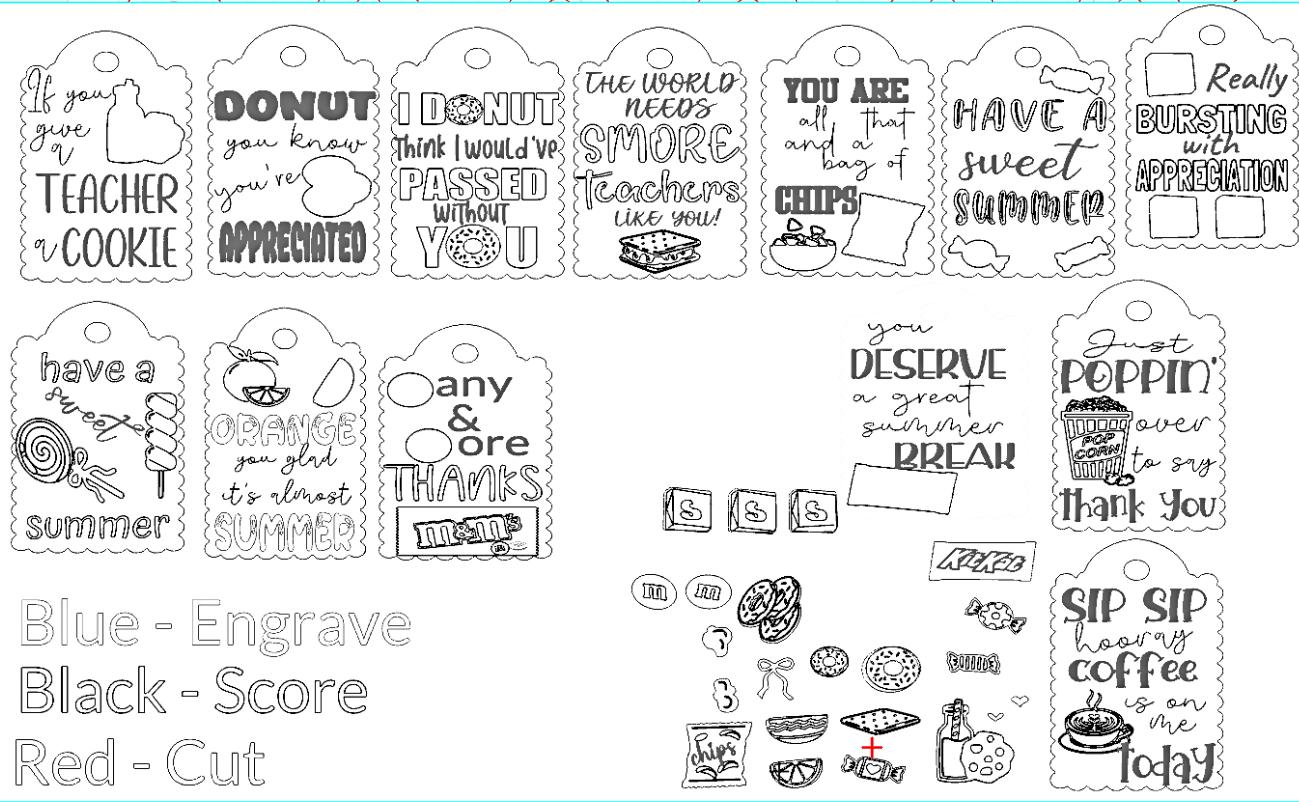 If you
give
a
TEACHER
a COOKIE
DONUT
you know
you're
APPRECIATED
I DONUT
Think I would've
PASSED
without
YOU
THE WORLD
NEEDS
SMORE
Teachers
LIKE YOU!
YOU ARE
all that
and a
bag of
CHIPS
HAVE A
sweet
SUMMER
Really
BURSTING
with
APPRECIATION
have a
sweet
summer
ORANGE
you glad
it's almost
SUMMER
any
&
ore
THANKS
m&m's
you
DESERVE
a great
summer
BREAK
Just
POPPIN'
POP
CORN
over
to say
Thank You
S S S
KitKat
m m
chips
SIP SIP
hooray
coffee
is on
me
Today
Blue - Engrave
Black - Score
Red - Cut